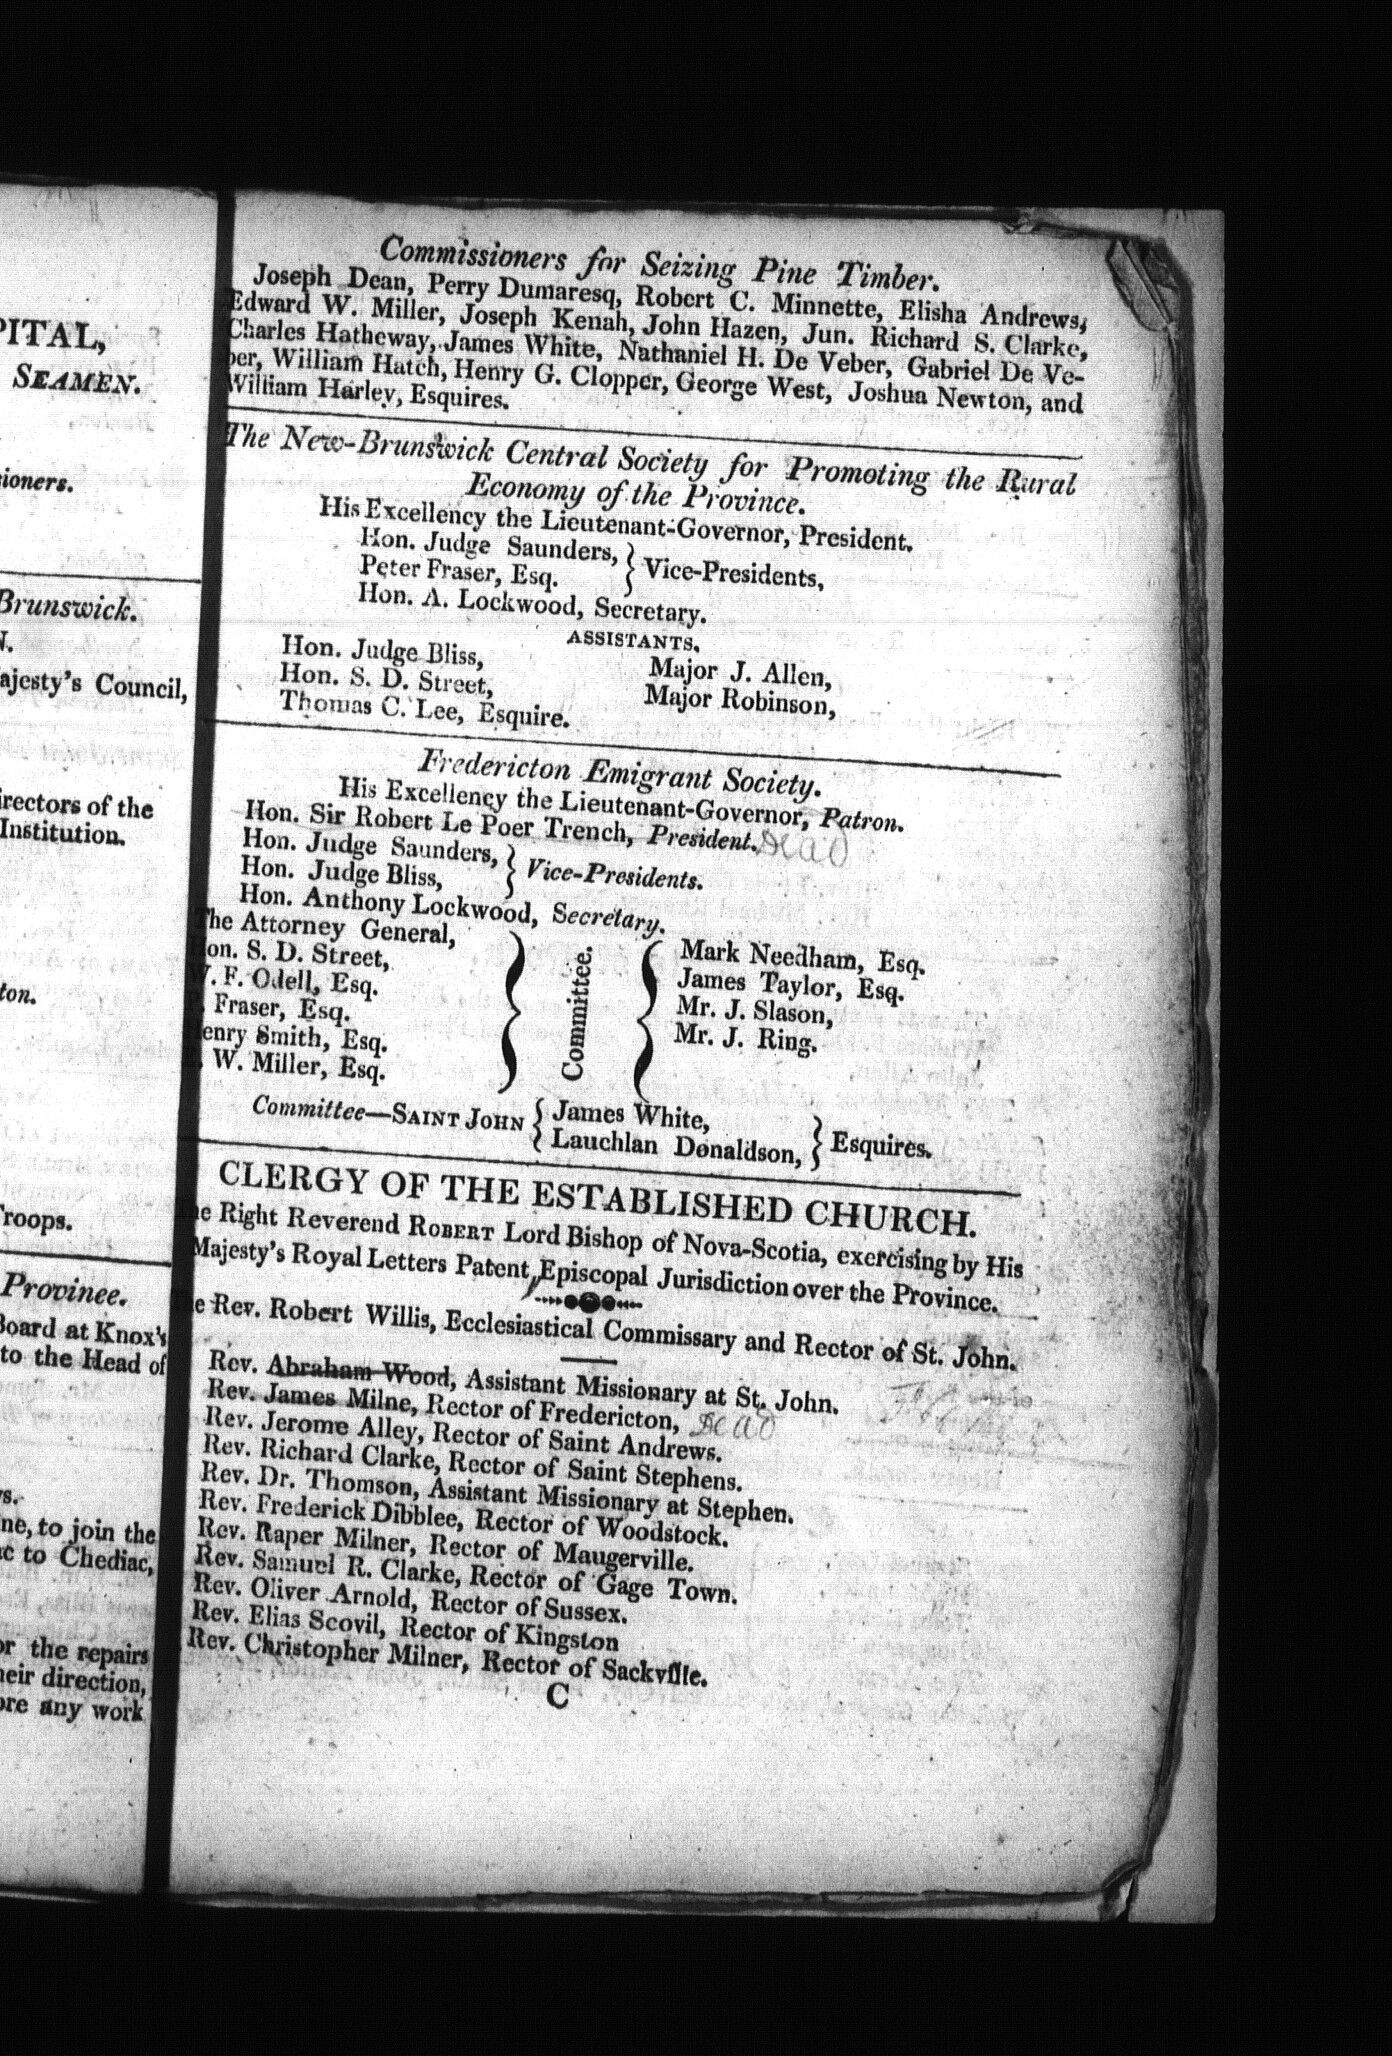 PITAL,
SEAMEN.
ioners.
Brunswick.
N.
ajesty's Council,
irectors of the
Institution.
ton.
Troops.
Provinee.
Board at Knox's
to the Head of
rs.
ne, to join the
ac to Chediac,
or the repairs
heir direction,
ore any work
Commissioners for Seizing Pine Timber.
Joseph Dean, Perry Dumaresq, Robert C. Minnette, Elisha Andrews,
Edward W. Miller, Joseph Kenah, John Hazen, Jun. Richard S. Clarke,
Charles Hatheway, James White, Nathaniel H. De Veber, Gabriel De Ve-
ber, William Hatch, Henry G. Clopper, George West, Joshua Newton, and
William Harley, Esquires.
The New-Brunswick Central Society for Promoting the Rural
Economy of the Province.
His Excellency the Lieutenant-Governor, President.
Hon. Judge Saunders, } Vice-Presidents,
Peter Fraser, Esq.
Hon. A. Lockwood, Secretary.
ASSISTANTS.
Hon. Judge Bliss, Major J. Allen,
Hon. S. D. Street, Major Robinson,
Thomas C. Lee, Esquire.
Fredericton Emigrant Society.
His Excellency the Lieutenant-Governor, Patron.
Hon. Sir Robert Le Poer Trench, President. Dead
Hon. Judge Saunders, } Vice-Presidents.
Hon. Judge Bliss,
Hon. Anthony Lockwood, Secretary.
The Attorney General,
Hon. S. D. Street,
W. F. Odell, Esq.
P. Fraser, Esq.
Henry Smith, Esq.
W. Miller, Esq.
Committee.
Mark Needham, Esq.
James Taylor, Esq.
Mr. J. Slason,
Mr. J. Ring.
Committee—SAINT JOHN { James White,
Lauchlan Donaldson, } Esquires.
CLERGY OF THE ESTABLISHED CHURCH.
The Right Reverend ROBERT Lord Bishop of Nova-Scotia, exercising by His
Majesty's Royal Letters Patent, Episcopal Jurisdiction over the Province.
The Rev. Robert Willis, Ecclesiastical Commissary and Rector of St. John.
Rev. Abraham Wood, Assistant Missionary at St. John.
Rev. James Milne, Rector of Fredericton, Dead
Rev. Jerome Alley, Rector of Saint Andrews.
Rev. Richard Clarke, Rector of Saint Stephens.
Rev. Dr. Thomson, Assistant Missionary at Stephen.
Rev. Frederick Dibblee, Rector of Woodstock.
Rev. Raper Milner, Rector of Maugerville.
Rev. Samuel R. Clarke, Rector of Gage Town.
Rev. Oliver Arnold, Rector of Sussex.
Rev. Elias Scovil, Rector of Kingston
Rev. Christopher Milner, Rector of Sackville.
C